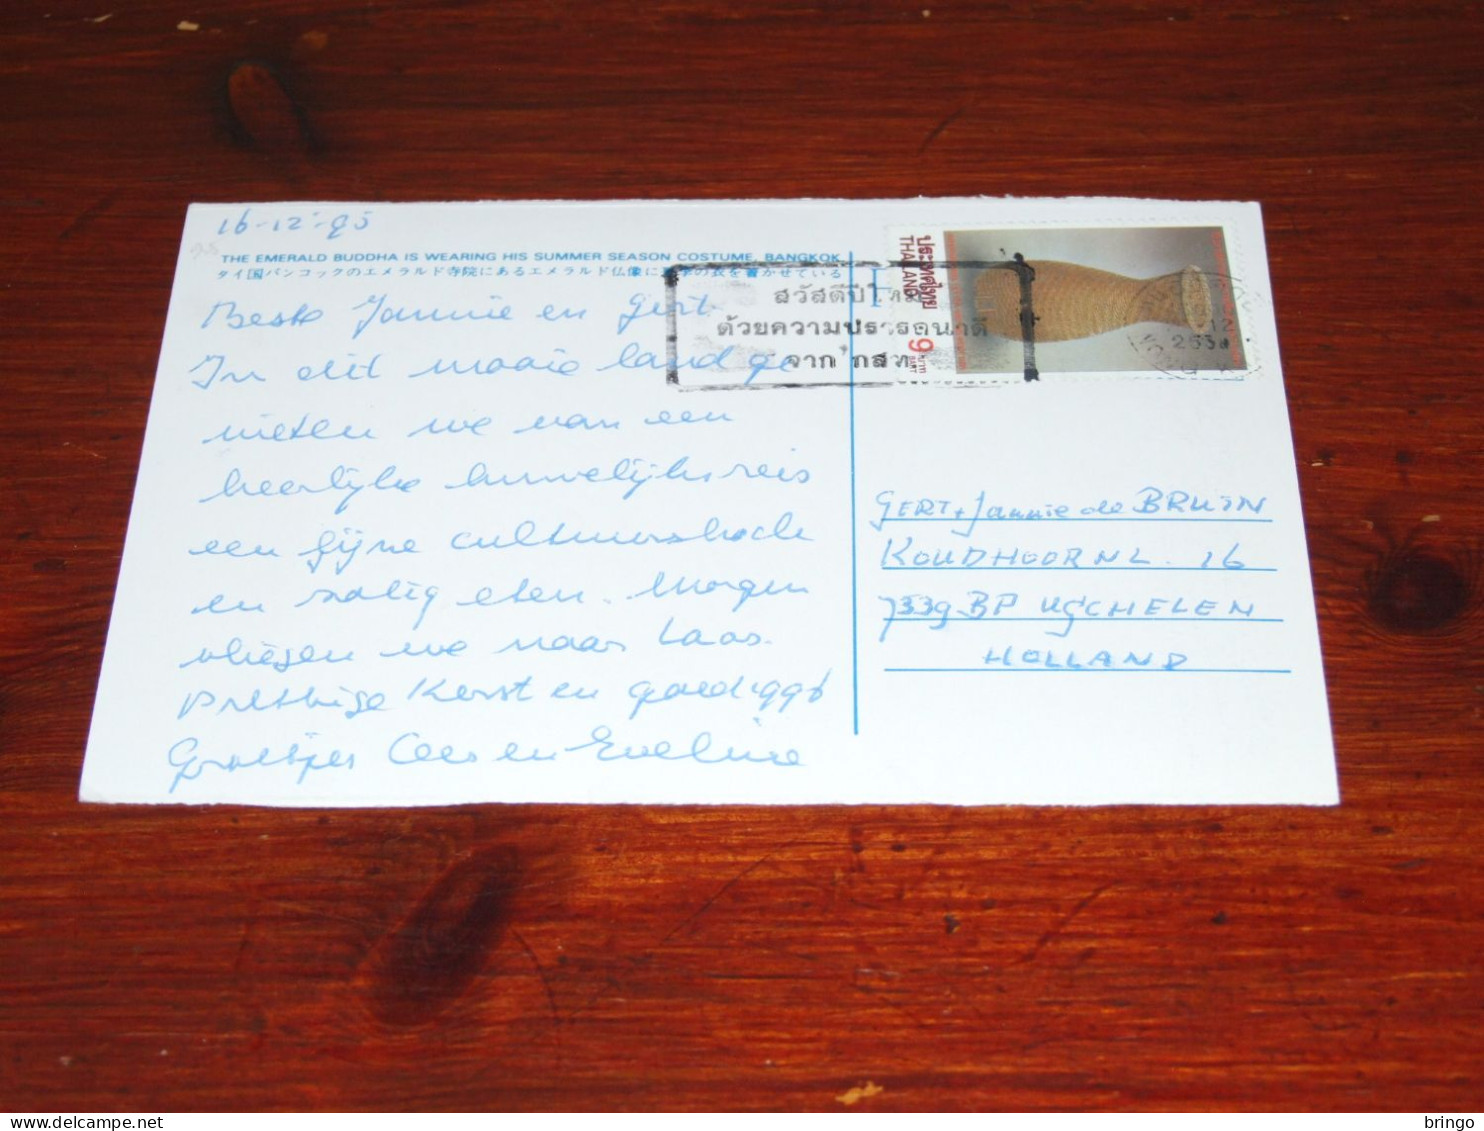 16-12-95
THE EMERALD BUDDHA IS WEARING HIS SUMMER SEASON COSTUME, BANGKOK
タイ国バンコックのエメラルド寺院にあるエメラルド仏像に の衣を着かせている
Beste Jannie en Gert.
In dit mooie land ge
nieten we van een
heerlijke huwelijksreis
een fijne cultuurshock
en zalig eten. Morgen
vliegen we naar Laos.
Prettige Kerst en goed 1996
Groetjes Cees en Eveline
ประเทศไทย
THAILAND
9
บาท
BAHT
สวัสดีปีใหม่
ด้วยความปรารถนาดี
จาก กสท
12
2538
GERT + Jannie de BRUIN
KOUDHOORNL. 16
7339 BP UGCHELEN
HOLLAND
bringo